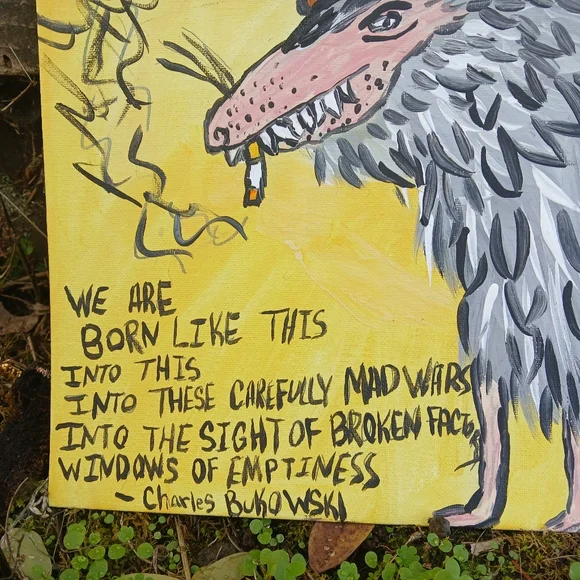 WE ARE
BORN LIKE THIS
INTO THIS
INTO THESE CAREFULLY MAD WARS
INTO THE SIGHT OF BROKEN FACTO
WINDOWS OF EMPTINESS
- Charles BUKOWSKI